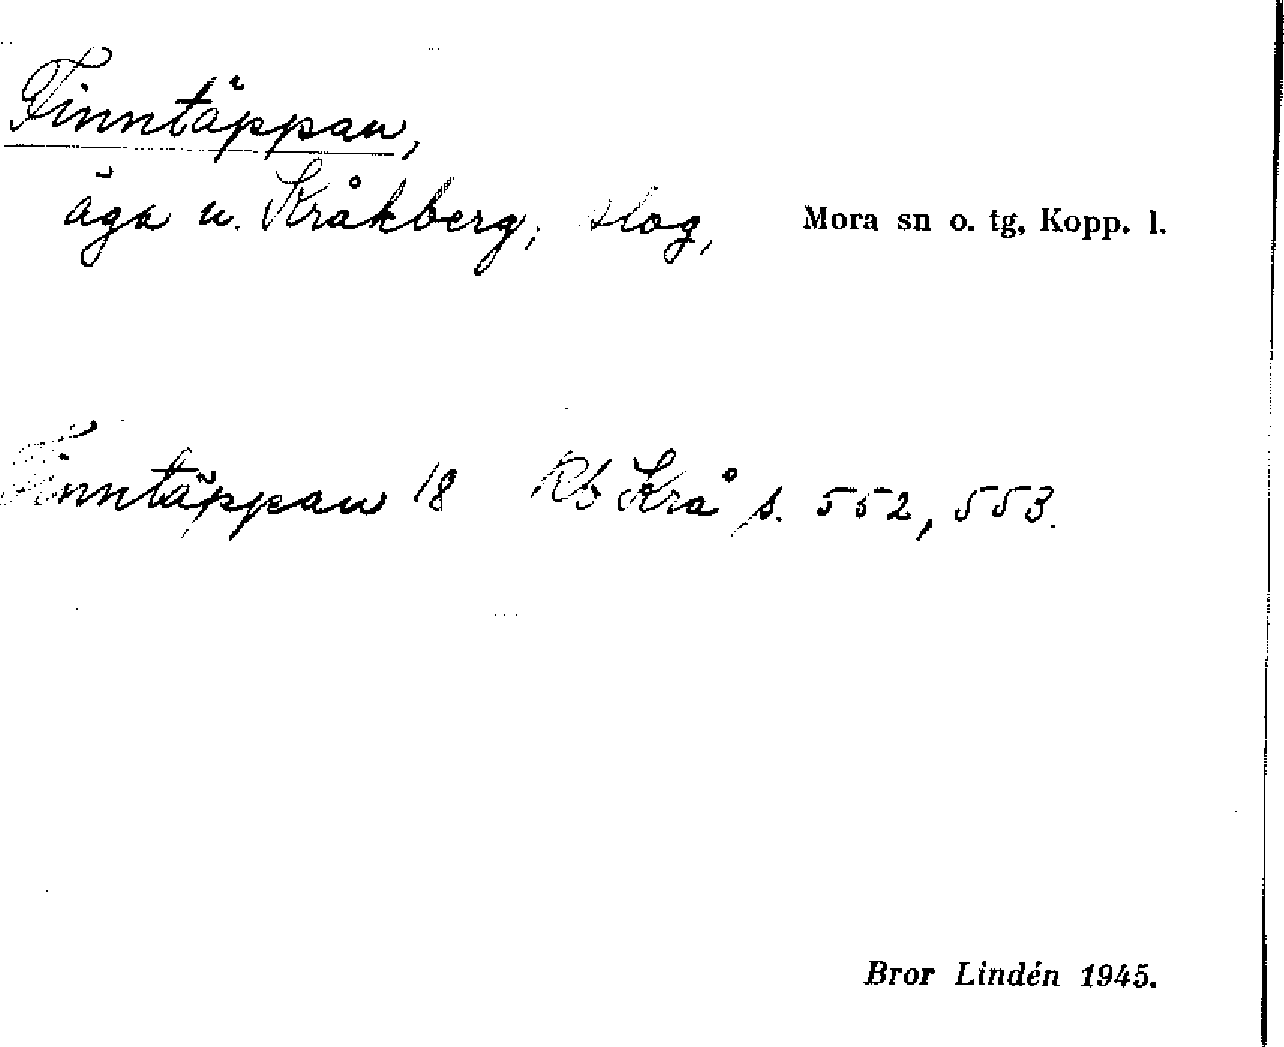 Finntäppan,
äga u. Kråkberg, skog, Mora sn o. tg, Kopp. l.
Finntäppan 18 Rb Krå s. 552, 553.
Bror Lindén 1945.